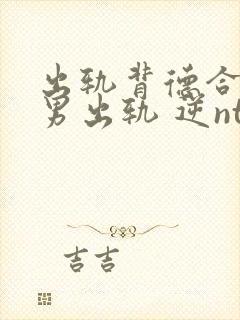 出轨背德合
男出轨 逆nt
吉吉